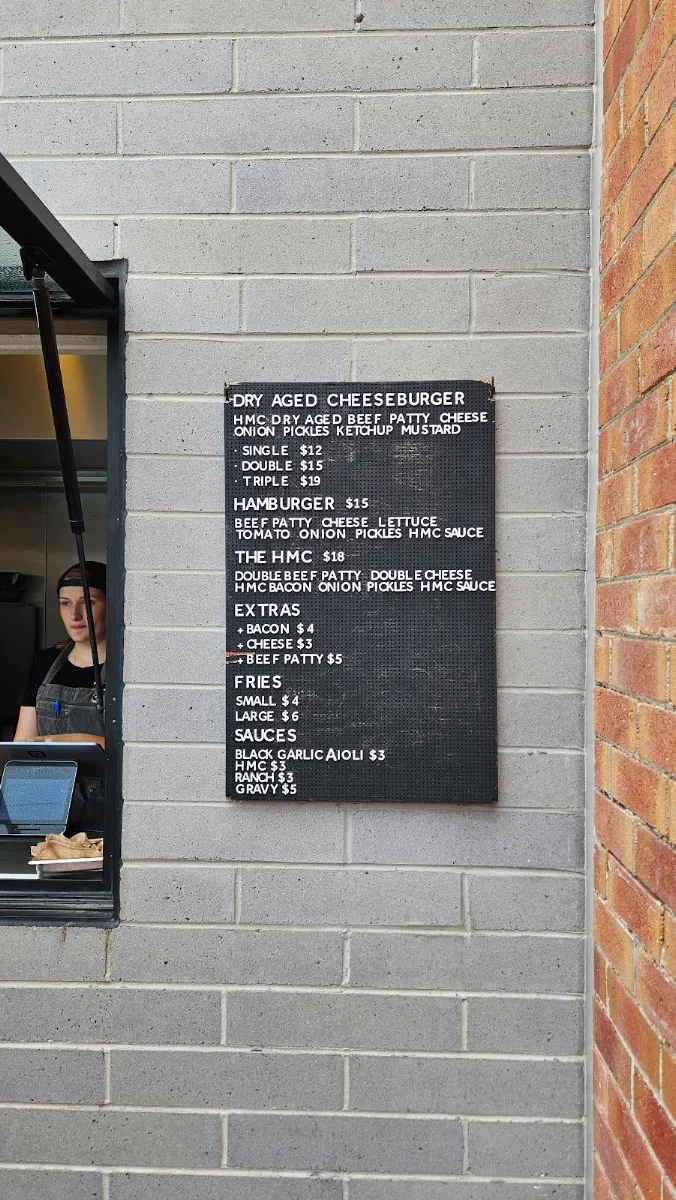 DRY AGED CHEESEBURGER
HMC DRY AGED BEEF PATTY CHEESE
ONION PICKLES KETCHUP MUSTARD
· SINGLE $12
· DOUBLE $15
· TRIPLE $19
HAMBURGER $15
BEEF PATTY CHEESE LETTUCE
TOMATO ONION PICKLES HMC SAUCE
THE HMC $18
DOUBLE BEEF PATTY DOUBLE CHEESE
HMC BACON ONION PICKLES HMC SAUCE
EXTRAS
+ BACON $4
+ CHEESE $3
+ BEEF PATTY $5
FRIES
SMALL $4
LARGE $6
SAUCES
BLACK GARLIC AIOLI $3
HMC $3
RANCH $3
GRAVY $5